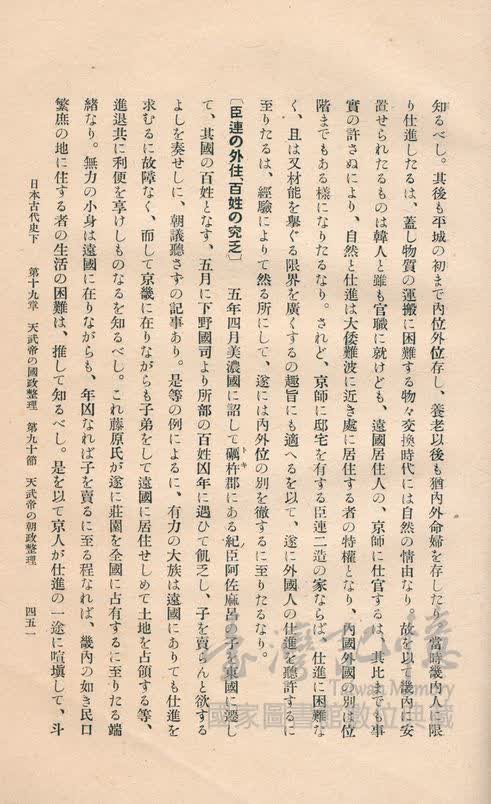 知るべし。其後も平城の初まで內位外位存し、養老以後も猶內外命婦を存したり。當時畿內人に限
り仕進したるは、蓋し物質の運搬に困難する物々交換時代には自然の情由なり。故を以て畿內に安
置せられたるものは韓人と雖も官職に就けども、遠國居住人の、京師に仕官するは、其比までも事
實の許さぬにより、自然と仕進は大倭難波に近き處に居住する者の特權となり、內國外國の別は位
階までもある樣になりたるなり。されど、京師に邸宅を有する臣連二造の家ならば、仕進に困難な
く、且は又材能を擧ぐる限界を廣くするの趣旨にも適へるを以て、遂に外國人の仕進を聽許するに
至りたるは、經驗によりて然る所にして、遂には內外位の別を徹するに至りたるなり。
〔臣連の外住、百姓の究乏〕　五年四月美濃國に詔して礪杵郡にある紀臣阿佐麻呂の子を東國に遷し
トキ
て、其國の百姓となす、五月に下野國司より所部の百姓凶年に遇ひて飢乏し、子を賣らんと欲する
よしを奏せしに、朝議聽さずの記事あり。是等の例によるに、有力の大族は遠國にありても仕進を
求むるに故障なく、而して京畿に在りながらも子弟をして遠國に居住せしめて土地を占領する等、
進退共に利便を享けしものなるを知るべし。これ藤原氏が遂に莊園を全國に占有するに至りたる端
緖なり。無力の小身は遠國に在りながらも、年凶なれば子を賣るに至る程なれば、畿內の如き民口
繁庶の地に住する者の生活の困難は、推して知るべし。是を以て京人が仕進の一途に喧塡して、斗
日本古代史下　第十九章　天武帝の國政整理　第九十節　天武帝の朝政整理　四五一
臺灣記憶
Taiwan Memory
國家圖書館數位典藏